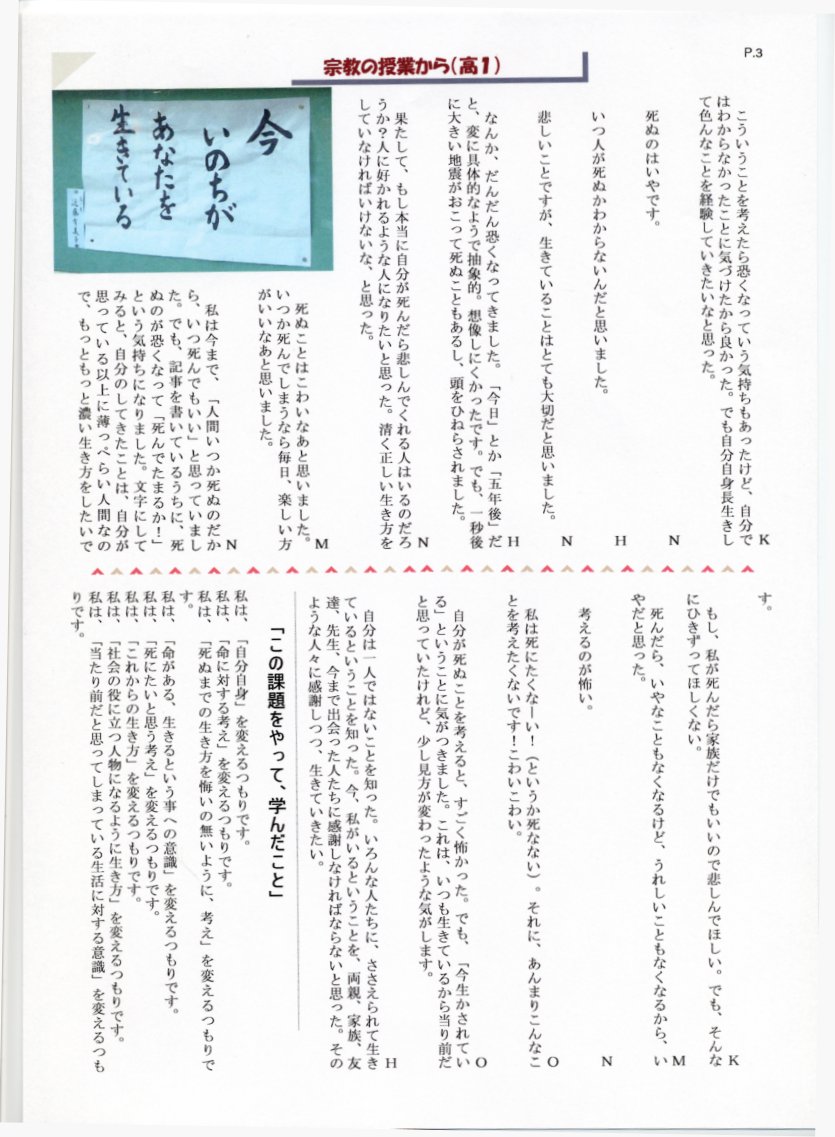 P.3
宗教の授業から(高1)
今
いのちが
あなたを
生きている
こういうことを考えたら恐くなっていう気持ちもあったけど、自分で
はわからなかったことに気づけたから良かった。でも自分自身長生きし
て色んなことを経験していきたいなと思った。
K
死ぬのはいやです。
N
いつ人が死ぬかわからないんだと思いました。
H
悲しいことですが、生きていることはとても大切だと思いました。
N
なんか、だんだん恐くなってきました。「今日」とか「五年後」だ
と、変に具体的なようで抽象的。想像しにくかったです。でも、一秒後
に大きい地震がおこって死ぬこともあるし、頭をひねらされました。
H
果たして、もし本当に自分が死んだら悲しんでくれる人はいるのだろ
うか?人に好かれるような人になりたいと思った。清く正しい生き方を
していなければいけないな、と思った。
N
死ぬことはこわいなあと思いました。
いつか死んでしまうなら毎日、楽しい方
がいいなあと思いました。
M
私は今まで、「人間いつか死ぬのだか
ら、いつ死んでもいい」と思っていまし
た。でも、記事を書いているうちに、死
ぬのが恐くなって「死んでたまるか!」
という気持ちになりました。文字にして
みると、自分のしてきたことは、自分が
思っている以上に薄っぺらい人間なの
で、もっともっと濃い生き方をしたいで
す。
N
もし、私が死んだら家族だけでもいいので悲しんでほしい。でも、そんな
にひきずってほしくない。
K
死んだら、いやなこともなくなるけど、うれしいこともなくなるから、い
やだと思った。
M
考えるのが怖い。
N
私は死にたくなーい!(というか死なない)。それに、あんまりこんなこ
とを考えたくないです!こわいこわい。
O
自分が死ぬことを考えると、すごく怖かった。でも、「今生かされてい
る」ということに気がつきました。これは、いつも生きているから当り前だ
と思っていたけれど、少し見方が変わったような気がします。
O
自分は一人ではないことを知った。いろんな人たちに、ささえられて生き
ているということを知った。今、私がいるということを、両親、家族、友
達、先生、今まで出会った人たちに感謝しなければならないと思った。その
ような人々に感謝しつつ、生きていきたい。
H
「この課題をやって、学んだこと」
私は、「自分自身」を変えるつもりです。
私は、「命に対する考え」を変えるつもりです。
私は、「死ぬまでの生き方を悔いの無いように、考え」を変えるつもりで
す。
私は、「命がある、生きるという事への意識」を変えるつもりです。
私は、「死にたいと思う考え」を変えるつもりです。
私は、「これからの生き方」を変えるつもりです。
私は、「社会の役に立つ人物になるように生き方」を変えるつもりです。
私は、「当たり前だと思ってしまっている生活に対する意識」を変えるつも
りです。